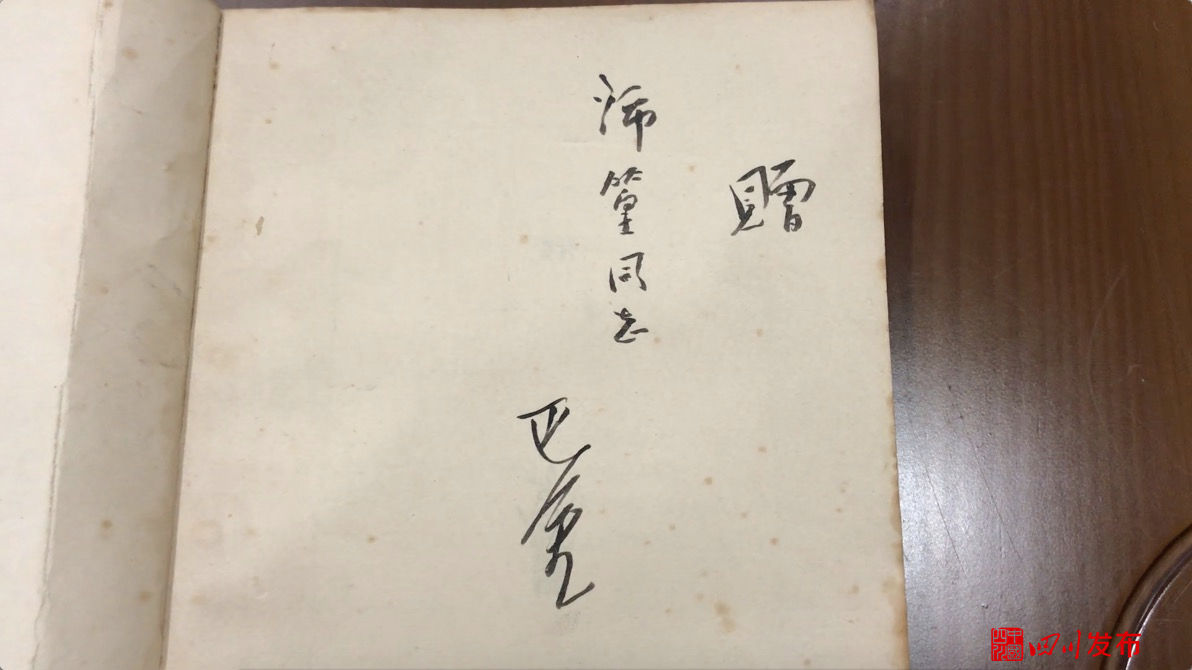 贈
沛篁同志
四川发布